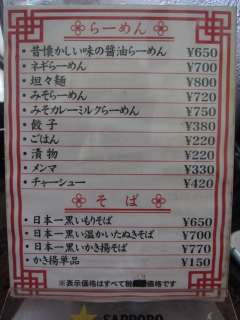 らーめん
・昔懐かしい味の醤油らーめん ¥650
・ネギらーめん ¥700
・坦々麺 ¥800
・みそらーめん ¥720
・みそカレーミルクらーめん ¥750
・餃子 ¥380
・ごはん ¥220
・漬物 ¥220
・メンマ ¥330
・チャーシュー ¥420
そば
・日本一黒いもりそば ¥650
・日本一黒い温かいたぬきそば ¥700
・日本一黒いかき揚そば ¥770
・かき揚単品 ¥150
※表示価格はすべて税 価格です
SAPPORO